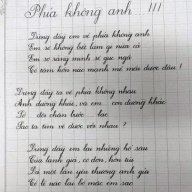 Phía không anh III
Đừng đẩy em về phía không anh
Em sẽ không biết làm gì nữa cả
Em sợ rằng mình sẽ gục ngã
Có tâm hồn nào mạnh mẽ mãi được đâu!
Đừng đẩy ta về phía không nhau
Anh đường khác, và em con đường khác
Lỡ đôi chân bước lạc
Sao ta tìm về được với nhau?
Đừng đẩy em lại những hố sâu
Của lạnh giá, cô đơn, hờn tủi
Là một lần yêu thương anh giữ
Có lẽ nào lại bỏ mặc em sao